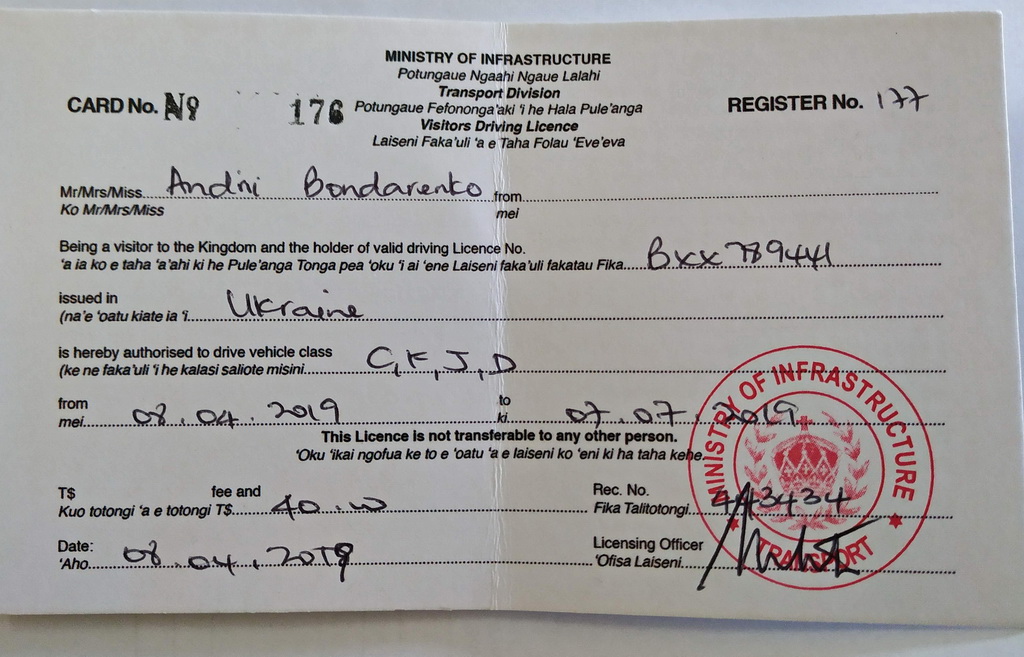 MINISTRY OF INFRASTRUCTURE
Potungaue Ngaahi Ngaue Lalahi
Transport Division
CARD No. Nº 176
Potungaue Fefononga'aki 'i he Hala Pule'anga
REGISTER No. 177
Visitors Driving Licence
Laiseni Faka'uli 'a e Taha Folau 'Eve'eva
Mr/Mrs/Miss Andrii Bondarenko from
Ko Mr/Mrs/Miss mei
Being a visitor to the Kingdom and the holder of valid driving Licence No.
'a ia ko e taha 'a'ahi ki he Pule'anga Tonga pea 'oku 'i ai 'ene Laiseni faka'uli fakatau Fika BXX 789441
issued in
(na'e 'oatu kiate ia 'i Ukraine
is hereby authorised to drive vehicle class
(ke ne faka'uli 'i he kalasi saliote misini C, F, J, D
from to
mei 08.04.2019 ki 07.07.2019
This Licence is not transferable to any other person.
'Oku 'ikai ngofua ke to e 'oatu 'a e laiseni ko 'eni ki ha taha kehe.
T$ fee and Rec. No.
Kuo totongi 'a e totongi T$ 40.00 Fika Talitotongi 443434
Date: Licensing Officer
'Aho 08.04.2019 'Ofisa Laiseni
MINISTRY OF INFRASTRUCTURE
TRANSPORT